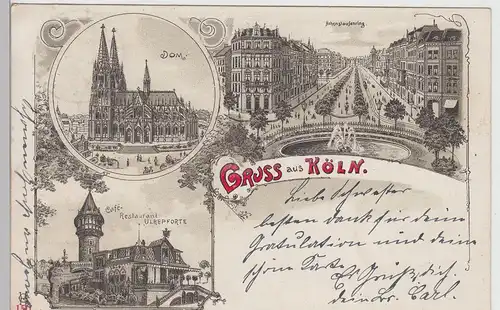 DOM.
Hohenstaufenring
GRUSS aus KÖLN.
Café-
Restaurant
ULREPFORTE
Liebe Schwester
besten Dank für deine
Gratulation und deine
schöne Karte.
Es grüßt dich.
dein Br. Carl.